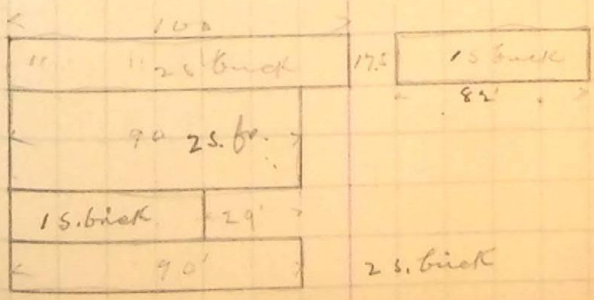 100
" " 2 S brick 17.5 1 S brick
82'
90 2 S. fr.
1 S. brick 29'
90' 2 S. brick